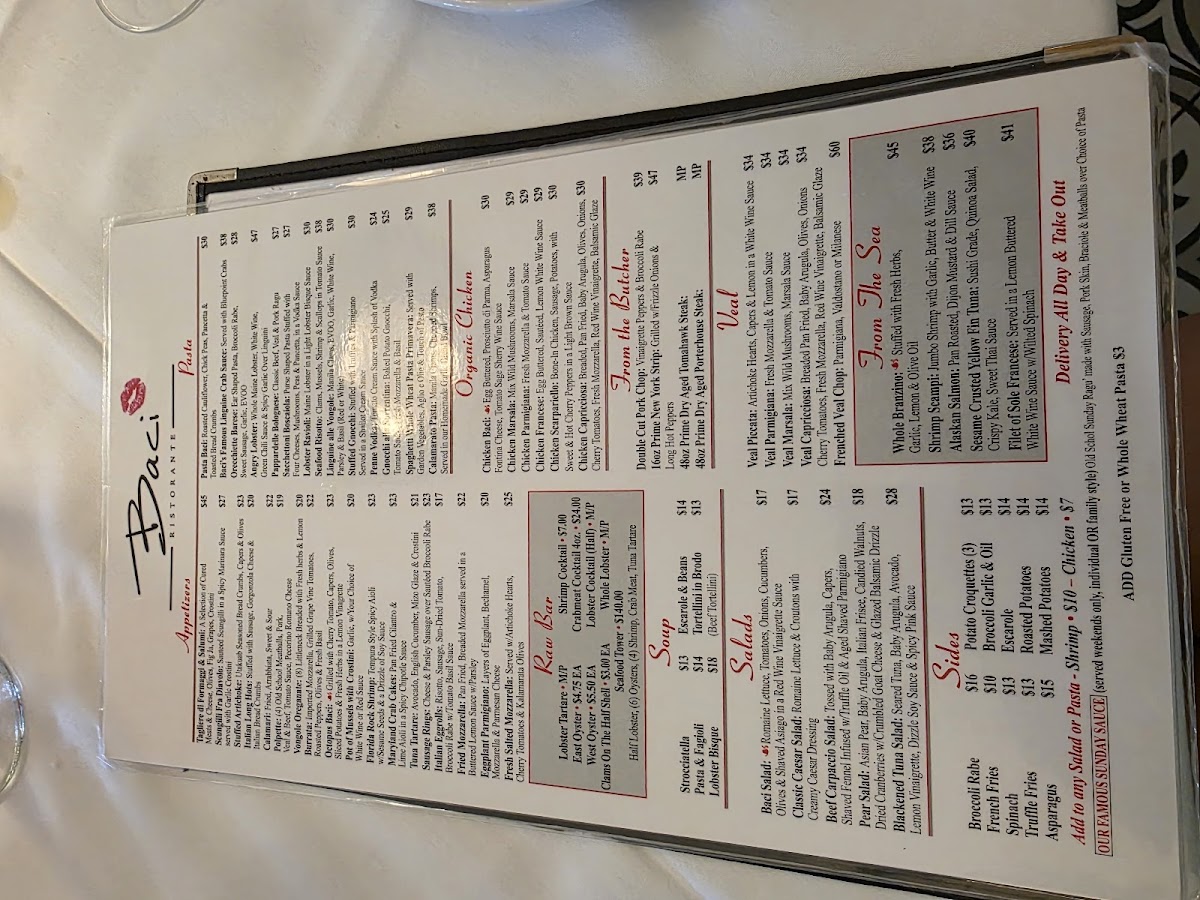 Baci
RISTORANTE
Appetizers
Tagliere di Formaggi & Salumi: A Selection of Cured $45
Meats & Cheese, Olives, Fig Ja, Grapes, Crostini
Scungilli Fra Diavolo: Sauteed Scungilli in a Spicy Marinara Sauce $27
served with Garlic Crostini
Stuffed Artichoke: Seasoned Bread Crumbs, Capers & Olives $23
Italian Long Hots: Stuffed with Sausage, Gorgonzola Cheese & $20
Italian Bread Crumbs
Calamari: Fried, Arrabbiata, Sweet & Sour $22
Polpette: (4) Old School Meatballs, Pork, $19
Veal & Beef, Tomato Sauce, Pecorino Romano Cheese
Vongole Oreganate: (8) Littleneck Breaded with Fresh herbs & Lemon $20
Burrata: Imported Mozzarella, Grilled Grape Vine Tomatoes, $22
Roasted Peppers, Olives & Fresh Basil
Octopus Baci: Grilled with Cherry Tomato, Capers, Olives, $23
Sliced Potatoes & Fresh Herbs in a Lemon Vinaigrette
Pot of Mussels Frites Crostini: Garlic, w/Your Choice of $20
White Wine or Red Sauce
Florida Rock Shrimp: Tempura Style Spicy Aioli $23
w/Sesame Seeds & a Drizzle of Soy Sauce
Maryland Crab Cakes: Pan Fried Cilantro & $23
Lime Aioli in a Spicy Chipotle Sauce
Tuna Tartare: Avocado, English Cucumber, Mizo Glaze & Crostini $21
Sausage Rings: Cheese & Parsley Sausage over Sautéed Broccoli Rabe $23
Italian Eggrolls: Risotto, Sausage, Sun-Dried Tomato, $17
Broccoli Rabe w/Tomato Basil Sauce
Fried Mozzarella: Pan Fried, Breaded Mozzarella served in a $22
Buttered Lemon Sauce w/Parsley
Eggplant Parmigiano: Layers of Eggplant, Bechamel, $20
Mozzarella & Parmesan Cheese
Fresh Salted Mozzarella: Served w/Artichoke Hearts, $25
Cherry Tomatoes & Kalamarata Olives
Raw Bar
Lobster Tartare • M/P Shrimp Cocktail • $7.00
East Oyster • $4.75 EA Crabmeat Cocktail 4oz. • $24.00
West Oyster • $5.50 EA Lobster Cocktail (Half) • M/P
Clams On The Half Shell • $3.00 EA Whole Lobster • M/P
Seafood Tower • $140.00
Half Lobster, (6) Oysters, (4) Shrimp, Crab Meat, Tuna Tartare
Soup
Stracciatella $13 Escarole & Beans $14
Pasta & Fagioli $14 Tortellini in Brodo $13
Lobster Bisque $18 (Beef Tortellini)
Salads
Baci Salad: Romaine Lettuce, Tomatoes, Onions, Cucumbers, $17
Olives & Shaved Asiago in a Red Wine Vinaigrette Sauce
Classic Caesar Salad: Romaine Lettuce & Croutons with $17
Creamy Caesar Dressing
Beef Carpaccio Salad: Tossed with Baby Arugula, Capers, $24
Shaved Fennel Infused w/Truffle Oil & Aged Shaved Parmigiano
Pear Salad: Asian Pear, Baby Arugula, Italian Frisee, Candied Walnuts, $18
Dried Cranberries w/Crumbled Goat Cheese & Glazed Balsamic Drizzle
Blackened Tuna Salad: Seared Tuna, Baby Arugula, Avocado, $28
Lemon Vinaigrette, Dizzle Soy Sauce & Spicy Pink Sauce
Sides
Broccoli Rabe $16 Potato Croquettes (3) $13
French Fries $10 Broccoli Garlic & Oil $13
Spinach $13 Escarole $14
Truffle Fries $13 Roasted Potatoes $14
Asparagus $15 Mashed Potatoes $14
Add to any Salad or Pasta - Shrimp • $10 – Chicken • $7
Pasta
Pasta Baci: Roasted Cauliflower, Chick Peas, Pancetta & $30
Toasted Bread Crumbs
Baci's Famous Linguine Crab Sauce: Served with Bluepoint Crabs $38
Orecchiette Barese: Ear Shaped Pasta, Broccoli Rabe, $28
Sweet Sausage, Garlic, EVOO
Angry Lobster: Whole Maine Lobster, White Wine, $47
Green Chili Sauce & Spicy Garlic Over Linguini
Pappardelle Bolognese: Classic Beef, Veal & Pork Ragu $27
Sacchettoni Boscaiola: Purse Shaped Pasta Stuffed with $27
Four Cheeses, Mushrooms, Peas & Pancetta, in a Vodka Sauce
Lobster Ravioli: Maine Lobster in a Light Lobster Bisque Sauce $30
Seafood Risotto: Clams, Mussels, Shrimp & Scallops in Tomato Sauce $38
Linguine alle Vongole: Manila Clams, EVOO, Garlic, White Wine, $30
Parsley & Basil (Red or White)
Stuffed Gnocchi: Stuffed with & Parmigiano $30
Served in a Sauce
Penne Vodka: Tomato Cream Sauce with Splash of Vodka $24
Gnocchi alla Sorrentina: Baked Potato Gnocchi, $25
Tomato Sauce, Mozzarella & Basil
Spaghetti Whole Wheat Pasta Primavera: Served with $29
Garden Veggies, Aglio e Olio & Touch of Pesto
Calamarato Pasta: Manila Clams and Shrimps, $38
Served in our Homemade Garlic
Organic Chicken
Chicken Baci: Egg Battered, Prosciutto di Parma, Asparagus $30
Fontina Cheese, Tomato Sage Sherry Wine Sauce
Chicken Marsala: Mix Wild Mushrooms, Marsala Sauce $29
Chicken Parmigiana: Fresh Mozzarella & Tomato Sauce $29
Chicken Francese: Egg Battered, Sautéed, Lemon White Wine Sauce $29
Chicken Scarpariello: Bone-In Chicken, Sausage, Potatoes, with $30
Sweet & Hot Cherry Peppers in a Light Brown Sauce
Chicken Capricciosa: Breaded, Pan Fried, Baby Arugula, Olives, Onions, $30
Cherry Tomatoes, Fresh Mozzarella, Red Wine Vinaigrette, Balsamic Glaze
From the Butcher
Double Cut Pork Chop: Vinaigrette Peppers & Broccoli Rabe $39
16oz Prime New York Strip: Grilled w/Frizzle Onions & $47
Long Hot Peppers
48oz Prime Dry Aged Tomahawk Steak: MP
48oz Prime Dry Aged Porterhouse Steak: MP
Veal
Veal Piccata: Artichoke Hearts, Capers & Lemon in a White Wine Sauce $34
Veal Parmigiana: Fresh Mozzarella & Tomato Sauce $34
Veal Marsala: Mix Wild Mushrooms, Marsala Sauce $34
Veal Capricciosa: Breaded Pan Fried, Baby Arugula, Olives, Onions $34
Cherry Tomatoes, Fresh Mozzarella, Red Wine Vinaigrette, Balsamic Glaze
Frenched Veal Chop: Parmigiana, Valdostano or Milanese $60
From The Sea
Whole Branzino: Stuffed with Fresh Herbs, $45
Garlic, Lemon & Olive Oil
Shrimp Scampi: Jumbo Shrimp with Garlic, Butter & White Wine $38
Alaskan Salmon: Pan Roasted, Dijon Mustard & Dill Sauce $36
Sesame Crusted Yellow Fin Tuna: Sushi Grade, Quinoa Salad, $40
Crispy Kale, Sweet Thai Sauce
Fillet of Sole Francese: Served in a Lemon Buttered $41
White Wine Sauce w/Wilted Spinach
Delivery All Day & Take Out
OUR FAMOUS SUNDAY SAUCE (served weekends only, individual OR family style) Old School Sunday Ragu' made with Sausage, Pork Skin, Braciole & Meatballs over Choice of Pasta
ADD Gluten Free or Whole Wheat Pasta $3